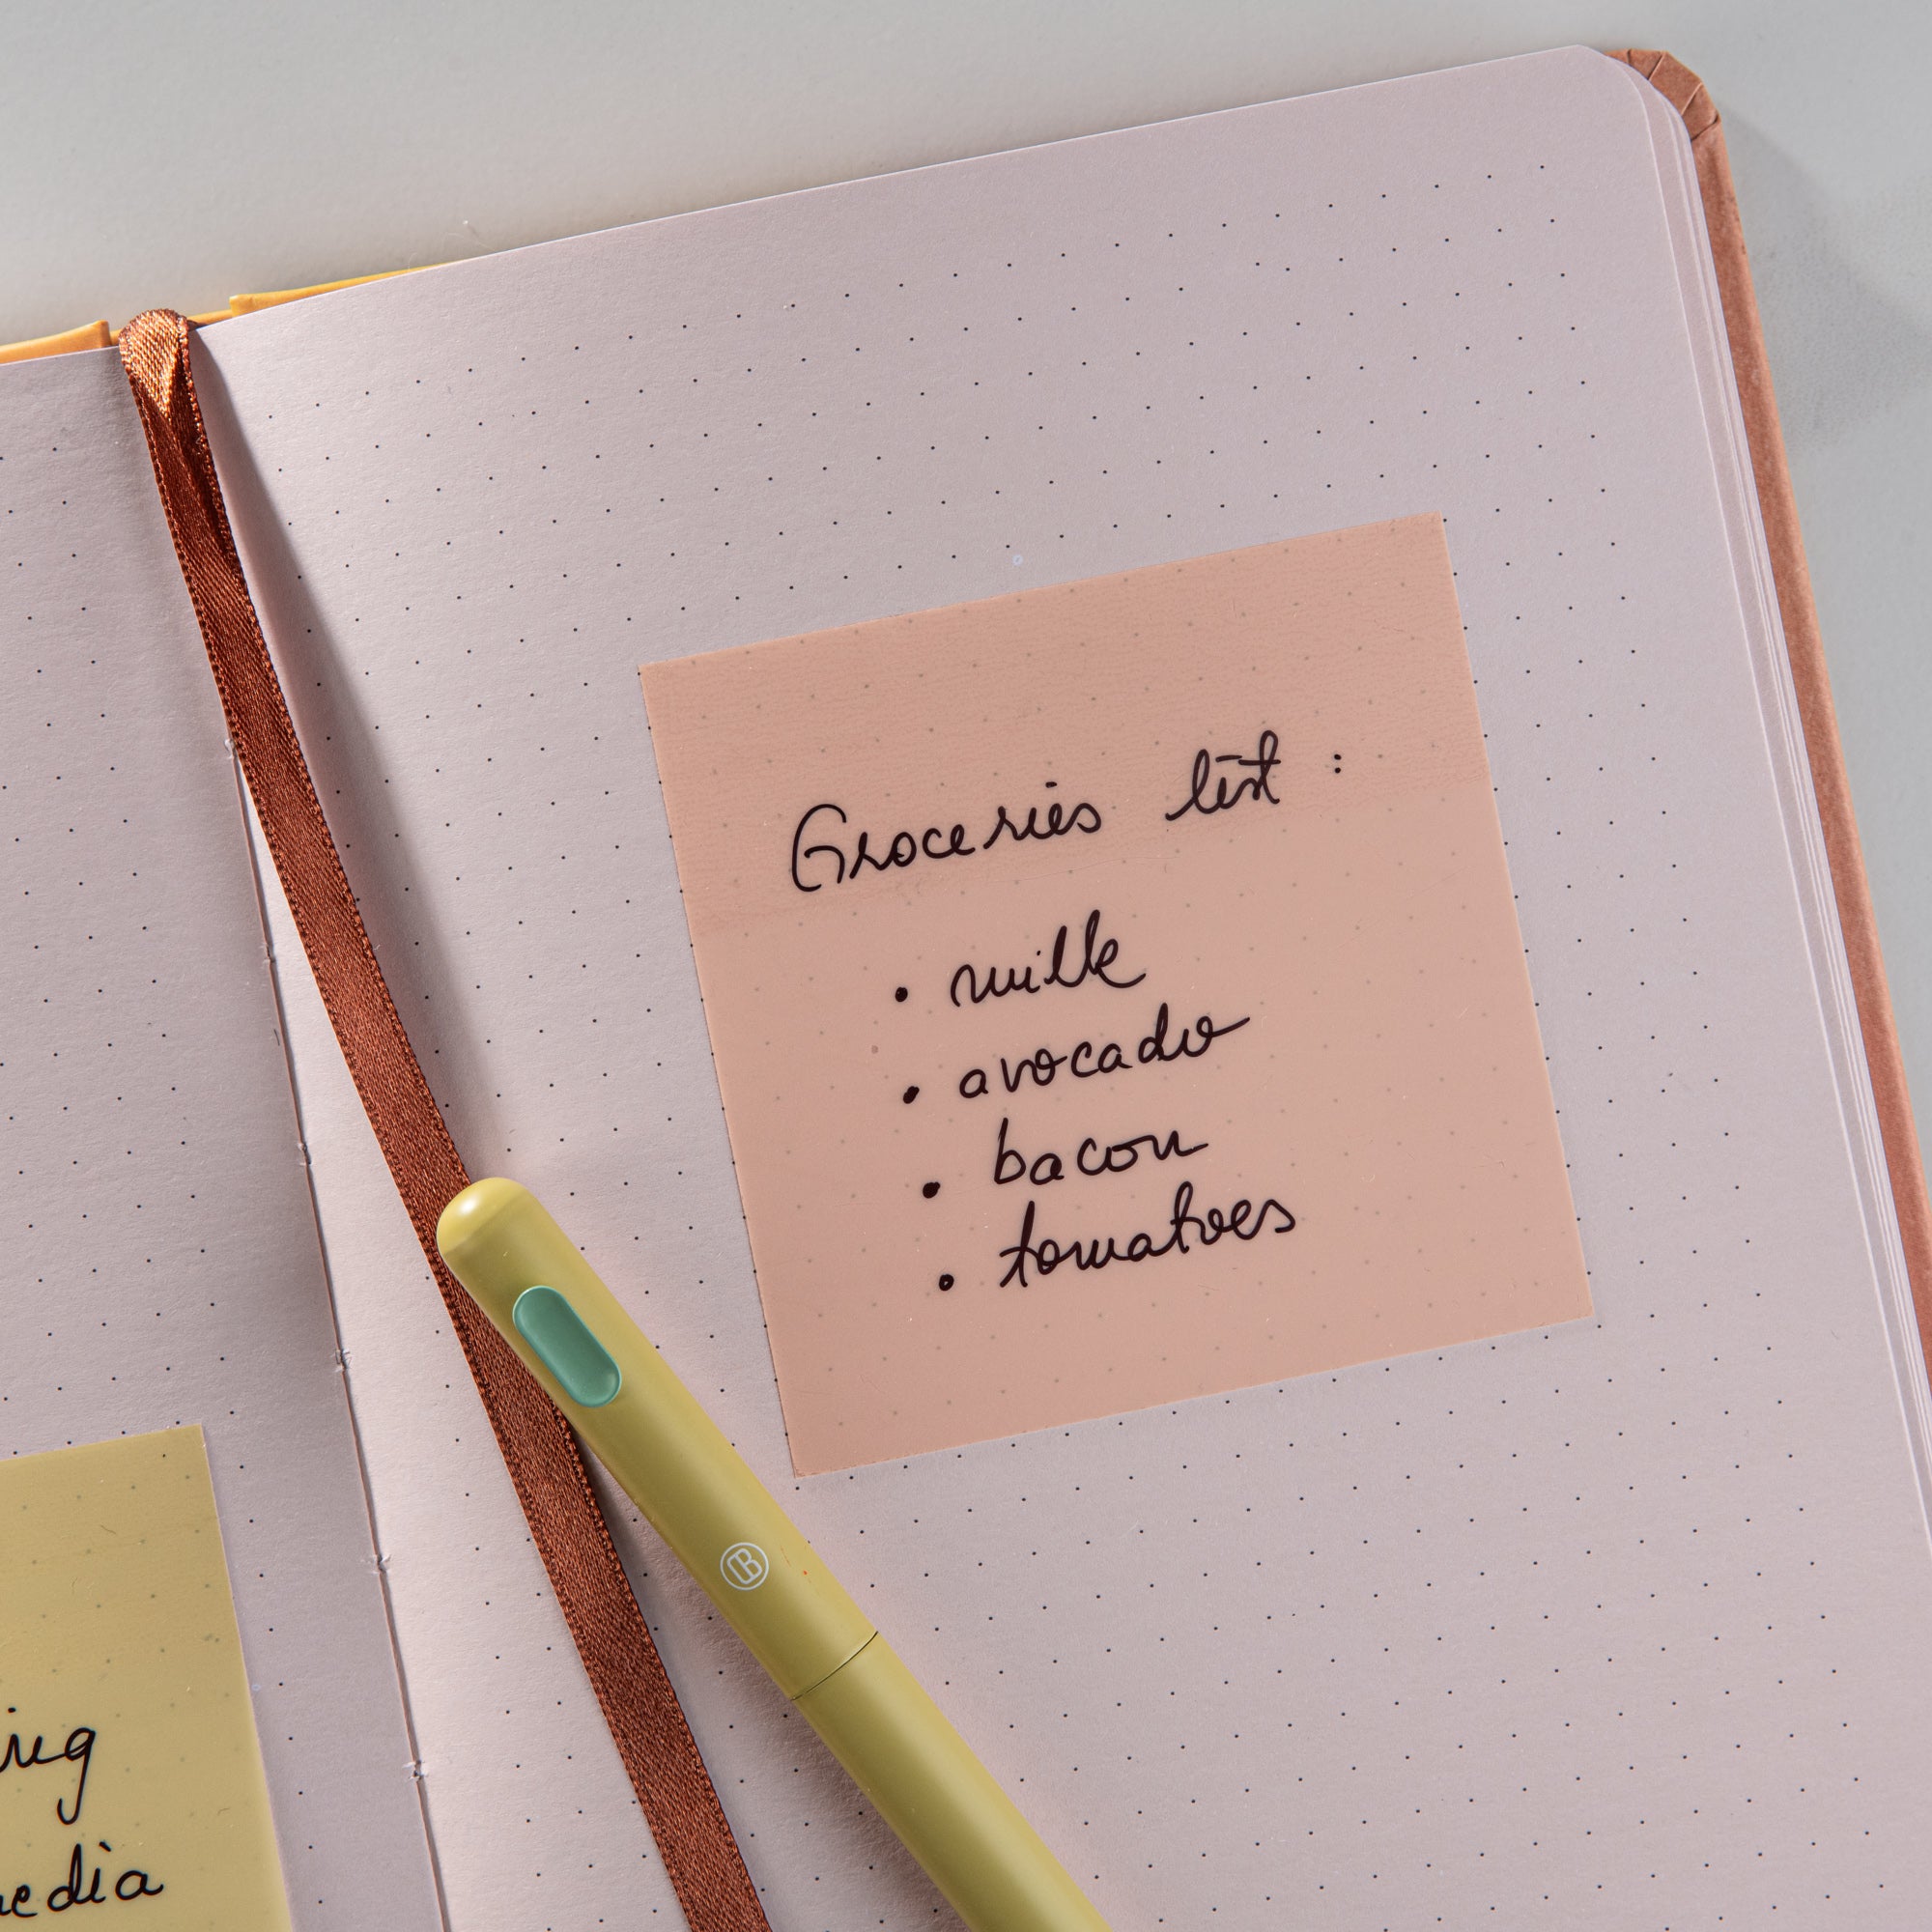 Groceries list :
• milk
• avocado
• bacon
• tomatoes